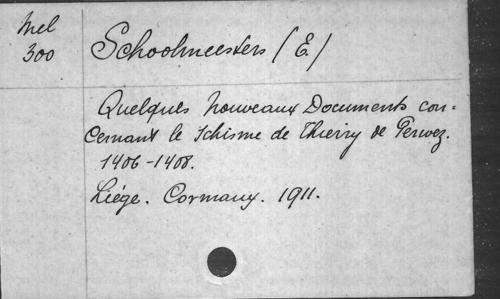 Mel
300
Schoolmeesters (E)
Quelques Nouveaux Documents con=
cernant le Schisme de Thierry de Perwez.
1406-1408.
Liége. Cormaux. 1911.